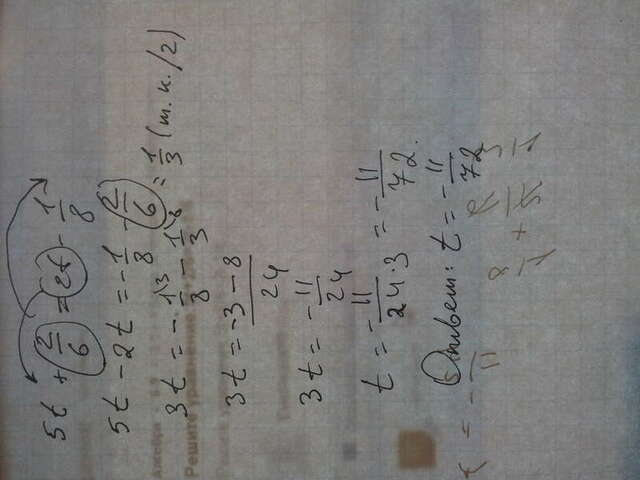 5t + 2/6 = 2t - 1/8
5t - 2t = - 1/8 - 2/6 = 1/3 (т.к. /2)
3t = - 1\3/8 - 1\8/3
3t = -3 - 8/24
3t = -11/24
t = -11/24·3 = - 11/72.
Ответ: t = - 11/72
Решите уравнение